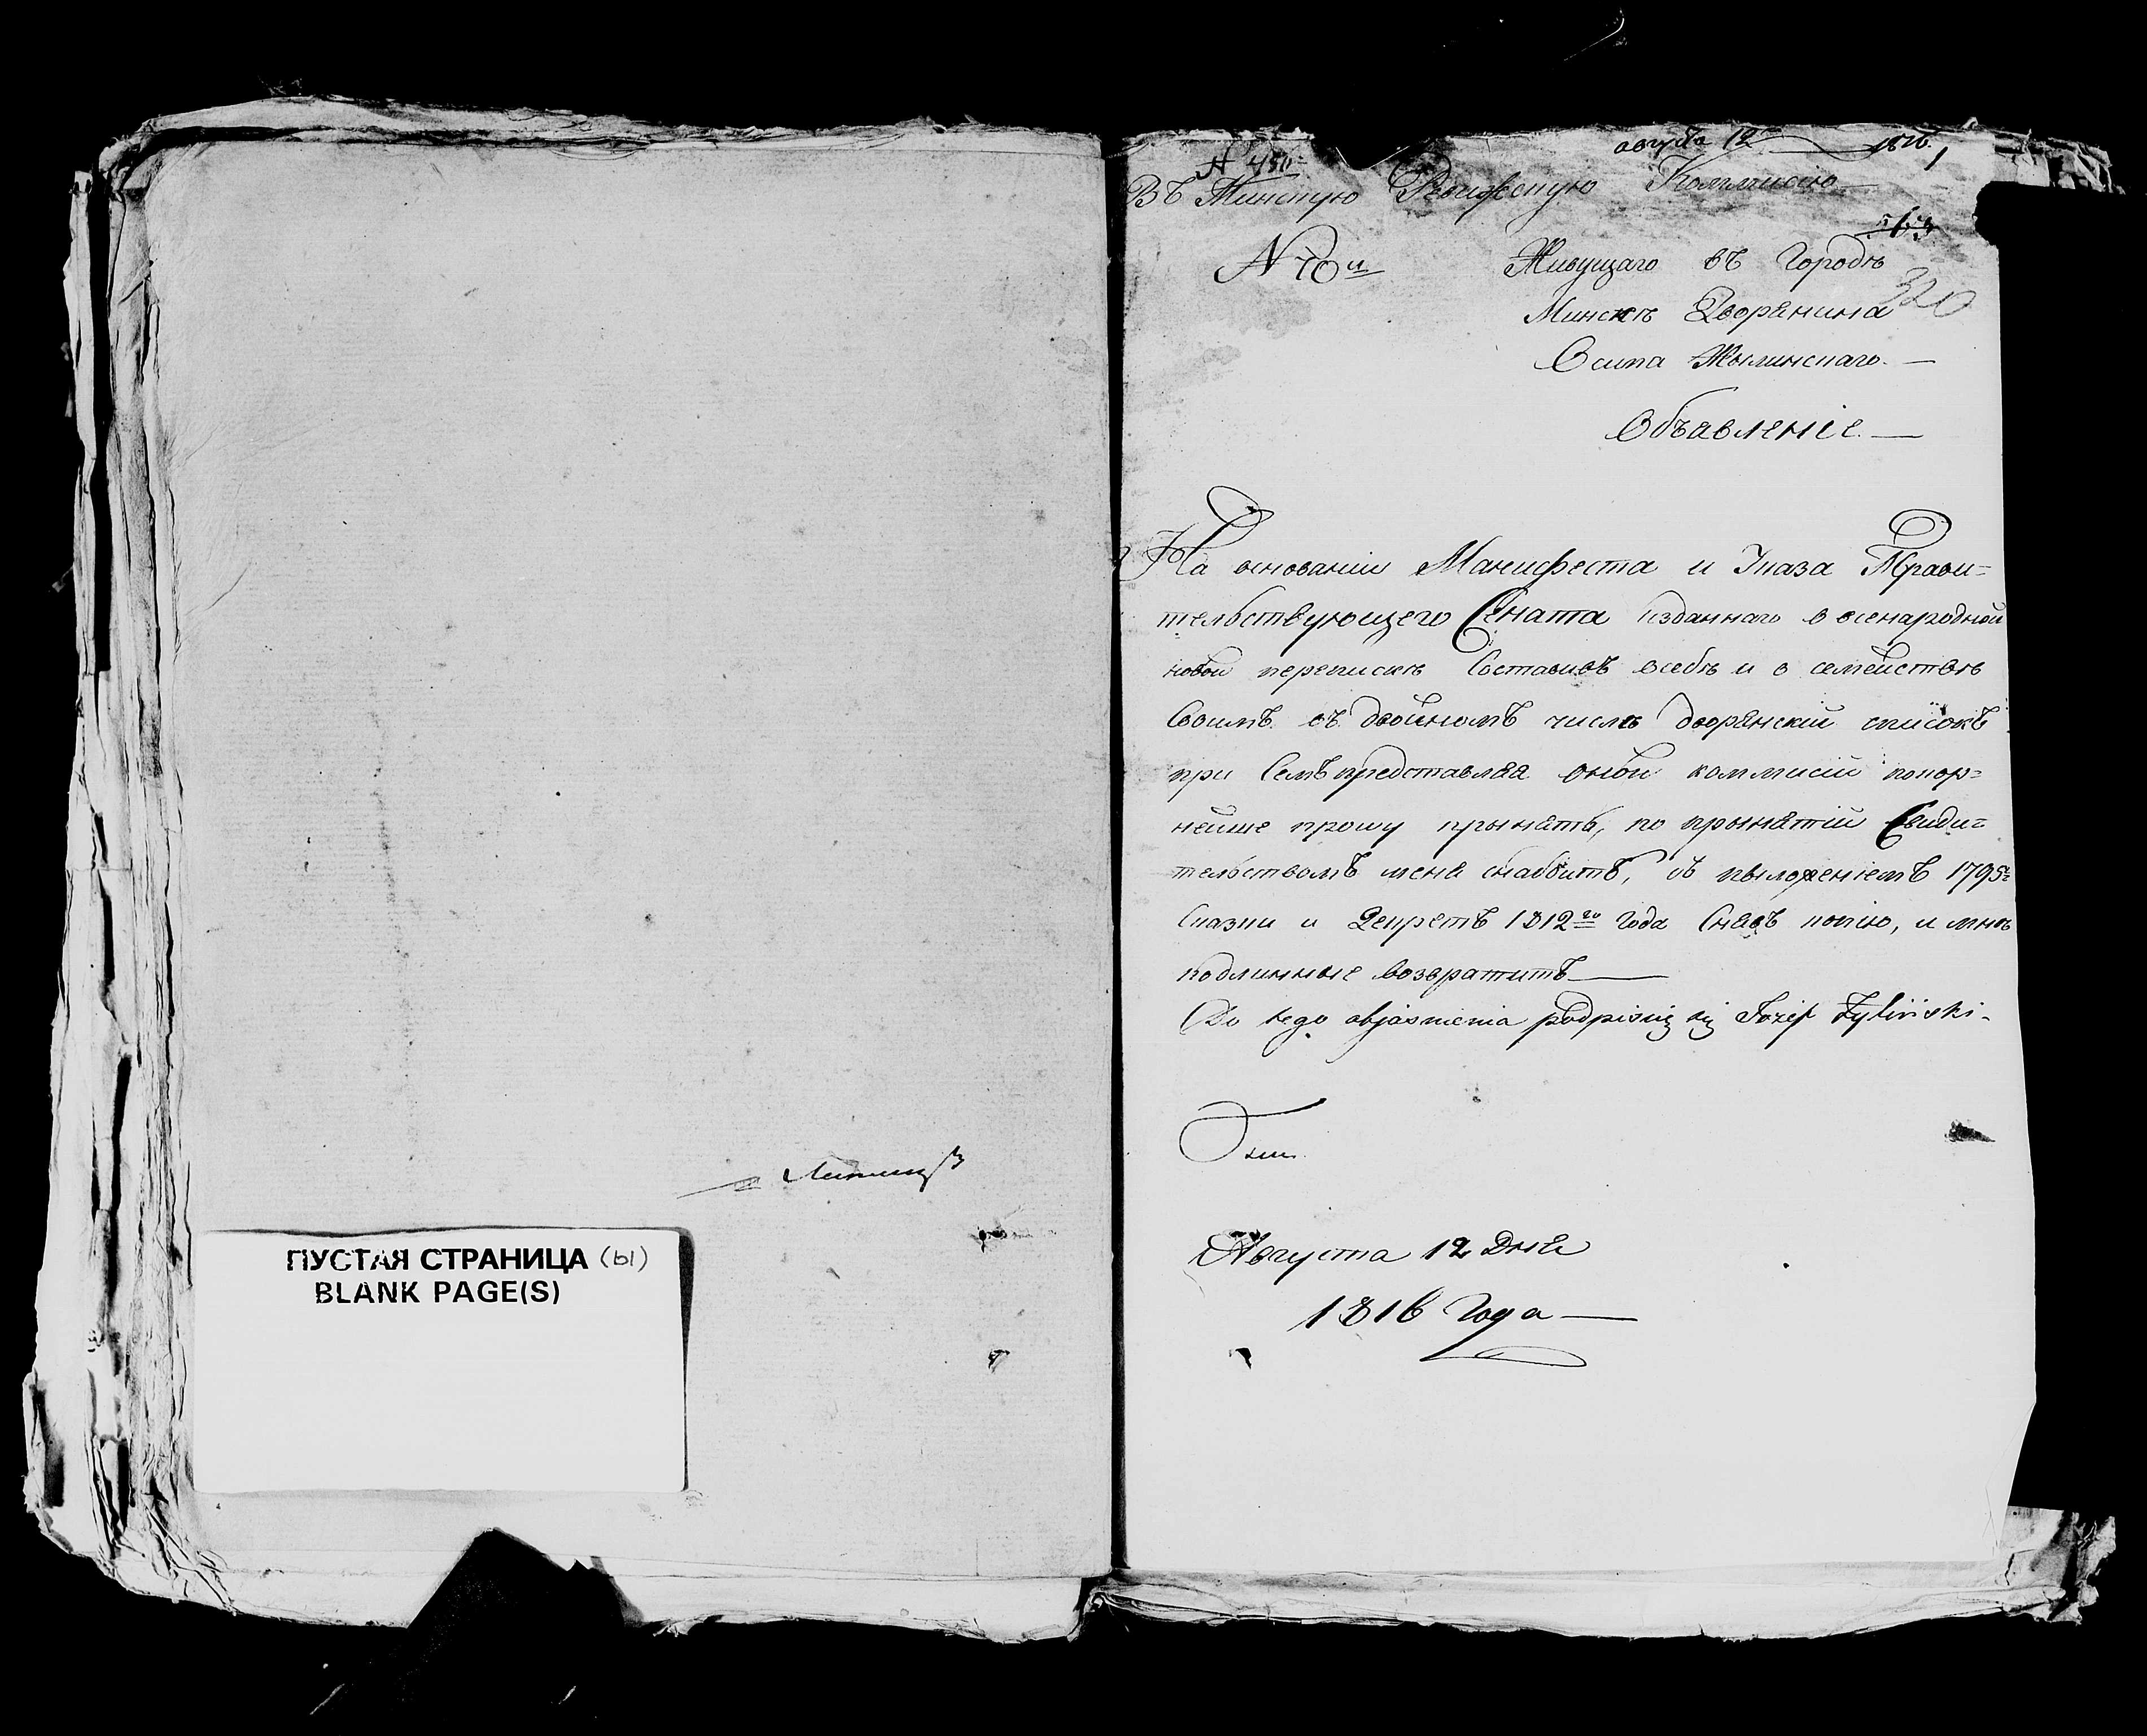 Липинск
ПУСТАЯ СТРАНИЦА (ы)
BLANK PAGE(S)
августа 12 1816.
N 450
Въ Минскую Ревижскую Коммисію
563
N 70й
Живущаго въ Городѣ
320
Минскѣ Дворянина
Осипа Жылинскаго.—
Объявленіе.—
На основаніи Манифеста и Указа Прави=
тельствующего Сената изданнаго о всенародной
новой перепискѣ Составивъ осебѣ и о семействѣ
Своимъ въ двойномъ числѣ дворянскій списокъ
при Семъ представляя оной коммисіи покор=
нейше прошу прынять, по прынятіи Свиди=
тельствомъ меня снабдить, съ прыложеніемъ 1795го
Сказки и Декретъ 1812го Года Снявъ копію, и мнѣ
подлинные возвратить—
Do tego objasnienia podpisuię się Józef Żyliński.
Августа 12 Дня
1816 Года—